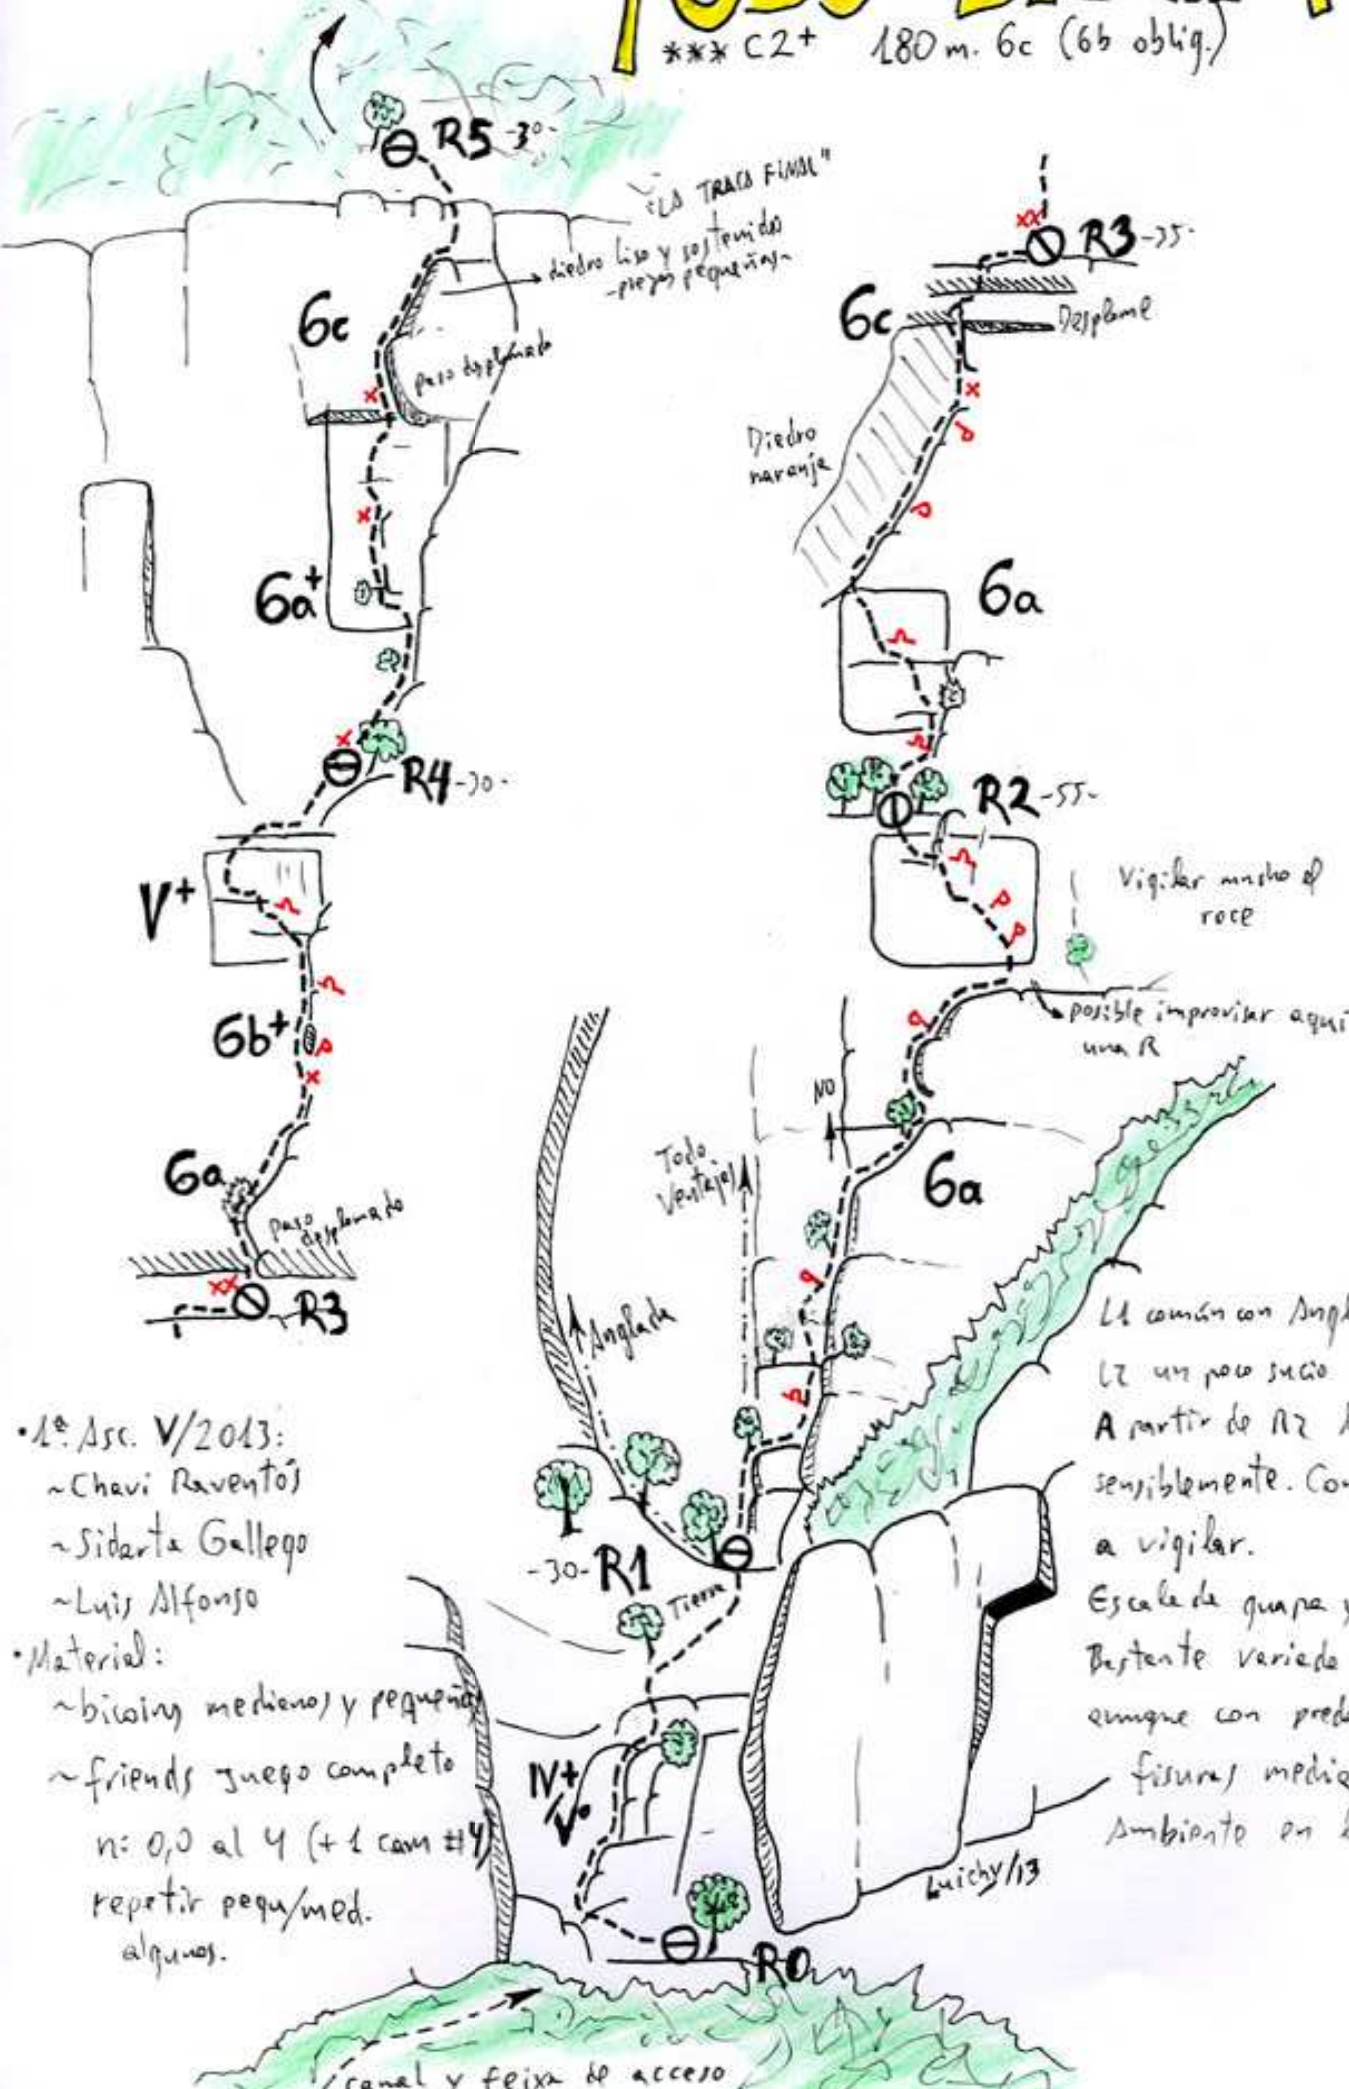 *** C2+ 180 m. 6c (6b oblig.)
R5 -30-
"LA TRACA FINAL"
diedro liso y sostenido
-piezas pequeñas-
6c
paso desplomado
6a+
R4 -30-
V+
6b+
6a
paso
desplomado
R3
R3 -35-
6c
Desplome
Diedro
naranja
6a
R2 -55-
Vigilar mucho el
roce
posible improvisar aquí
una R
NO
Todo
Ventajas
6a
Anglada
-30- R1
Tierra
IV+
/Vº
R0
Luichy/13
canal y feixa de acceso
• 1ª. Asc. V/2013:
~Chavi Raventós
~Sidarta Gallego
~Luis Alfonso
• Material:
~bicoins medianos y pequeños
~friends juego completo
n: 0,0 al 4 (+1 cam #4)
repetir pequ/med.
algunos.
L1 común con Angl
L2 un poco sucio
A partir de R2
sensiblemente. Con
a vigilar.
Escalada guapa y
Bastante variada
aunque con pred
fisuras media
Ambiente en